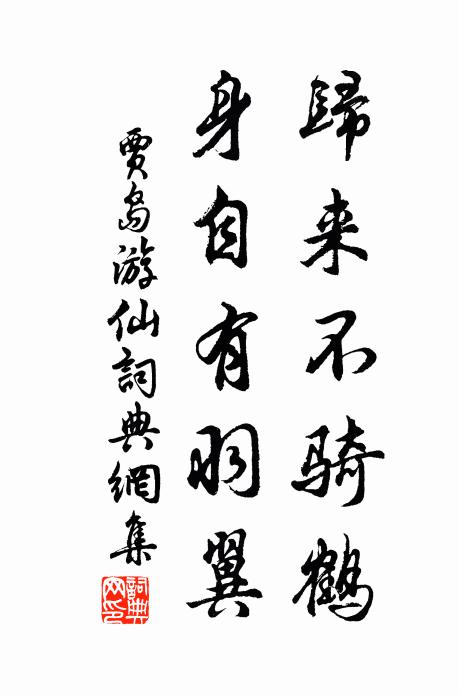 歸来不骑鹤
身自有羽翼
賈島游仙詞典網集
詞典網印